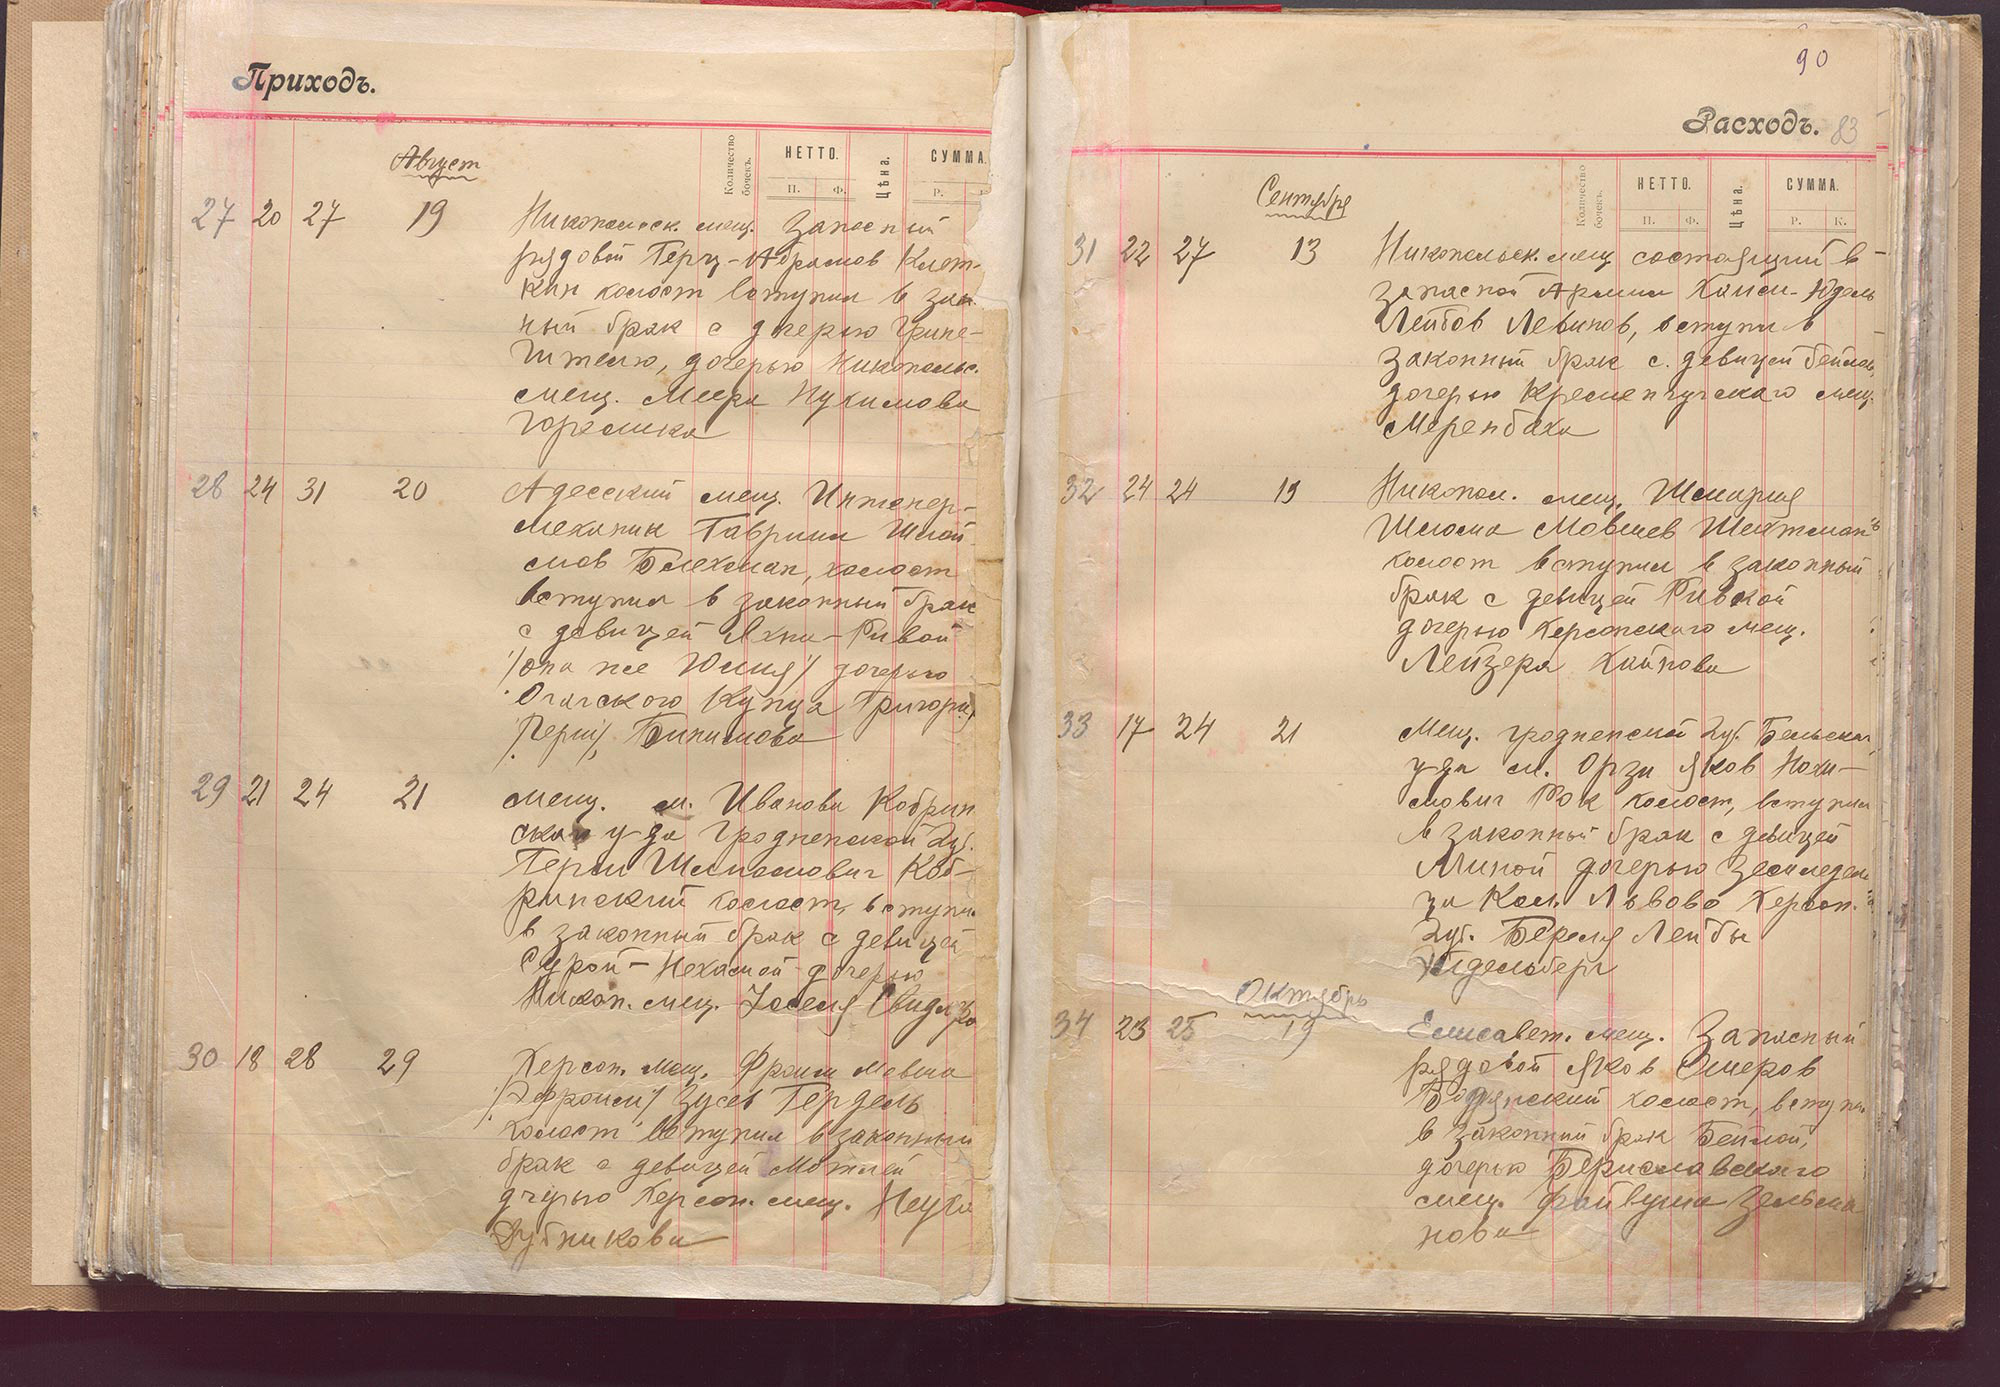 Приходъ.
Количество бочекъ.
НЕТТО.
П. Ф.
Цѣна.
СУММА.
Р.
Август
27 20 27 19 Никопольск. мещ. Запасный
рядовой Герц-Абрамов Клет-
кин холост вступил в зак
ный брак с дочерью
дочерью Никопольс.
мещ. Меера Нухимова
Горелика
28 24 31 20 Адесский мещ. Инженер-
механик Гавриил Шлой
мов Блехман, холост
вступил в законный брак
с девицей Яхна-Ривой
/она же Юлия/ дочерью
Очаковского Купца Григория
/Герш/
29 21 24 21 мещ. м. Иванова Кобрин
ского у-да Гродненской Губ.
Герш Шлиомович Коб-
ринский холост, вступи.
в законный брак с девицей
Сурой-Нехамой дочерью
Никоп. мещ. Иоселя
30 18 28 29 Херсон. мещ. Фроим Мовша
/Эфроим/ Зусев Гердель
холост вступил в законный
брак с девицей
дчерью Херсон. мещ. Неуха
Дубникова
90
Расходъ. 83
Количество бочекъ.
НЕТТО.
П. Ф.
Цѣна.
СУММА.
Р. К.
Сентябрь
31 22 27 13 Никопольск. мещ состоящий в
запасной Армии Хаим-Юдель
Лейбов Левинов, вступил в
законный брак с. девицей Бейлей,
дочерью Кременчугскаго мещ.
Меренбаха
32 24 24 13 Никопол. мещ. Шмария
Шлиома Мовшев Шейтманъ
холост вступил в законный
брак с девицей Ривкой
дочерью Херсонскаго мещ.
Лейзера Хаинова
33 17 24 21 Мещ. гродненской Губ. Бельскаг
у-да м. Орзи Яков Нохи-
мович Рок холост, вступил
в законный брак с девицей
Миной дочерью Земледель
ца Кол. Львово Херсон.
Губ. Береля Лейбы
Эйдельберг
Октябрь
34 23 25 19 Елисавет. мещ. Запасный
рядовой Яков Омеров
холост, вступи
в законный брак Бейлой,
дочерью Бериславскаго
мещ. Файвуша Зельма
нова